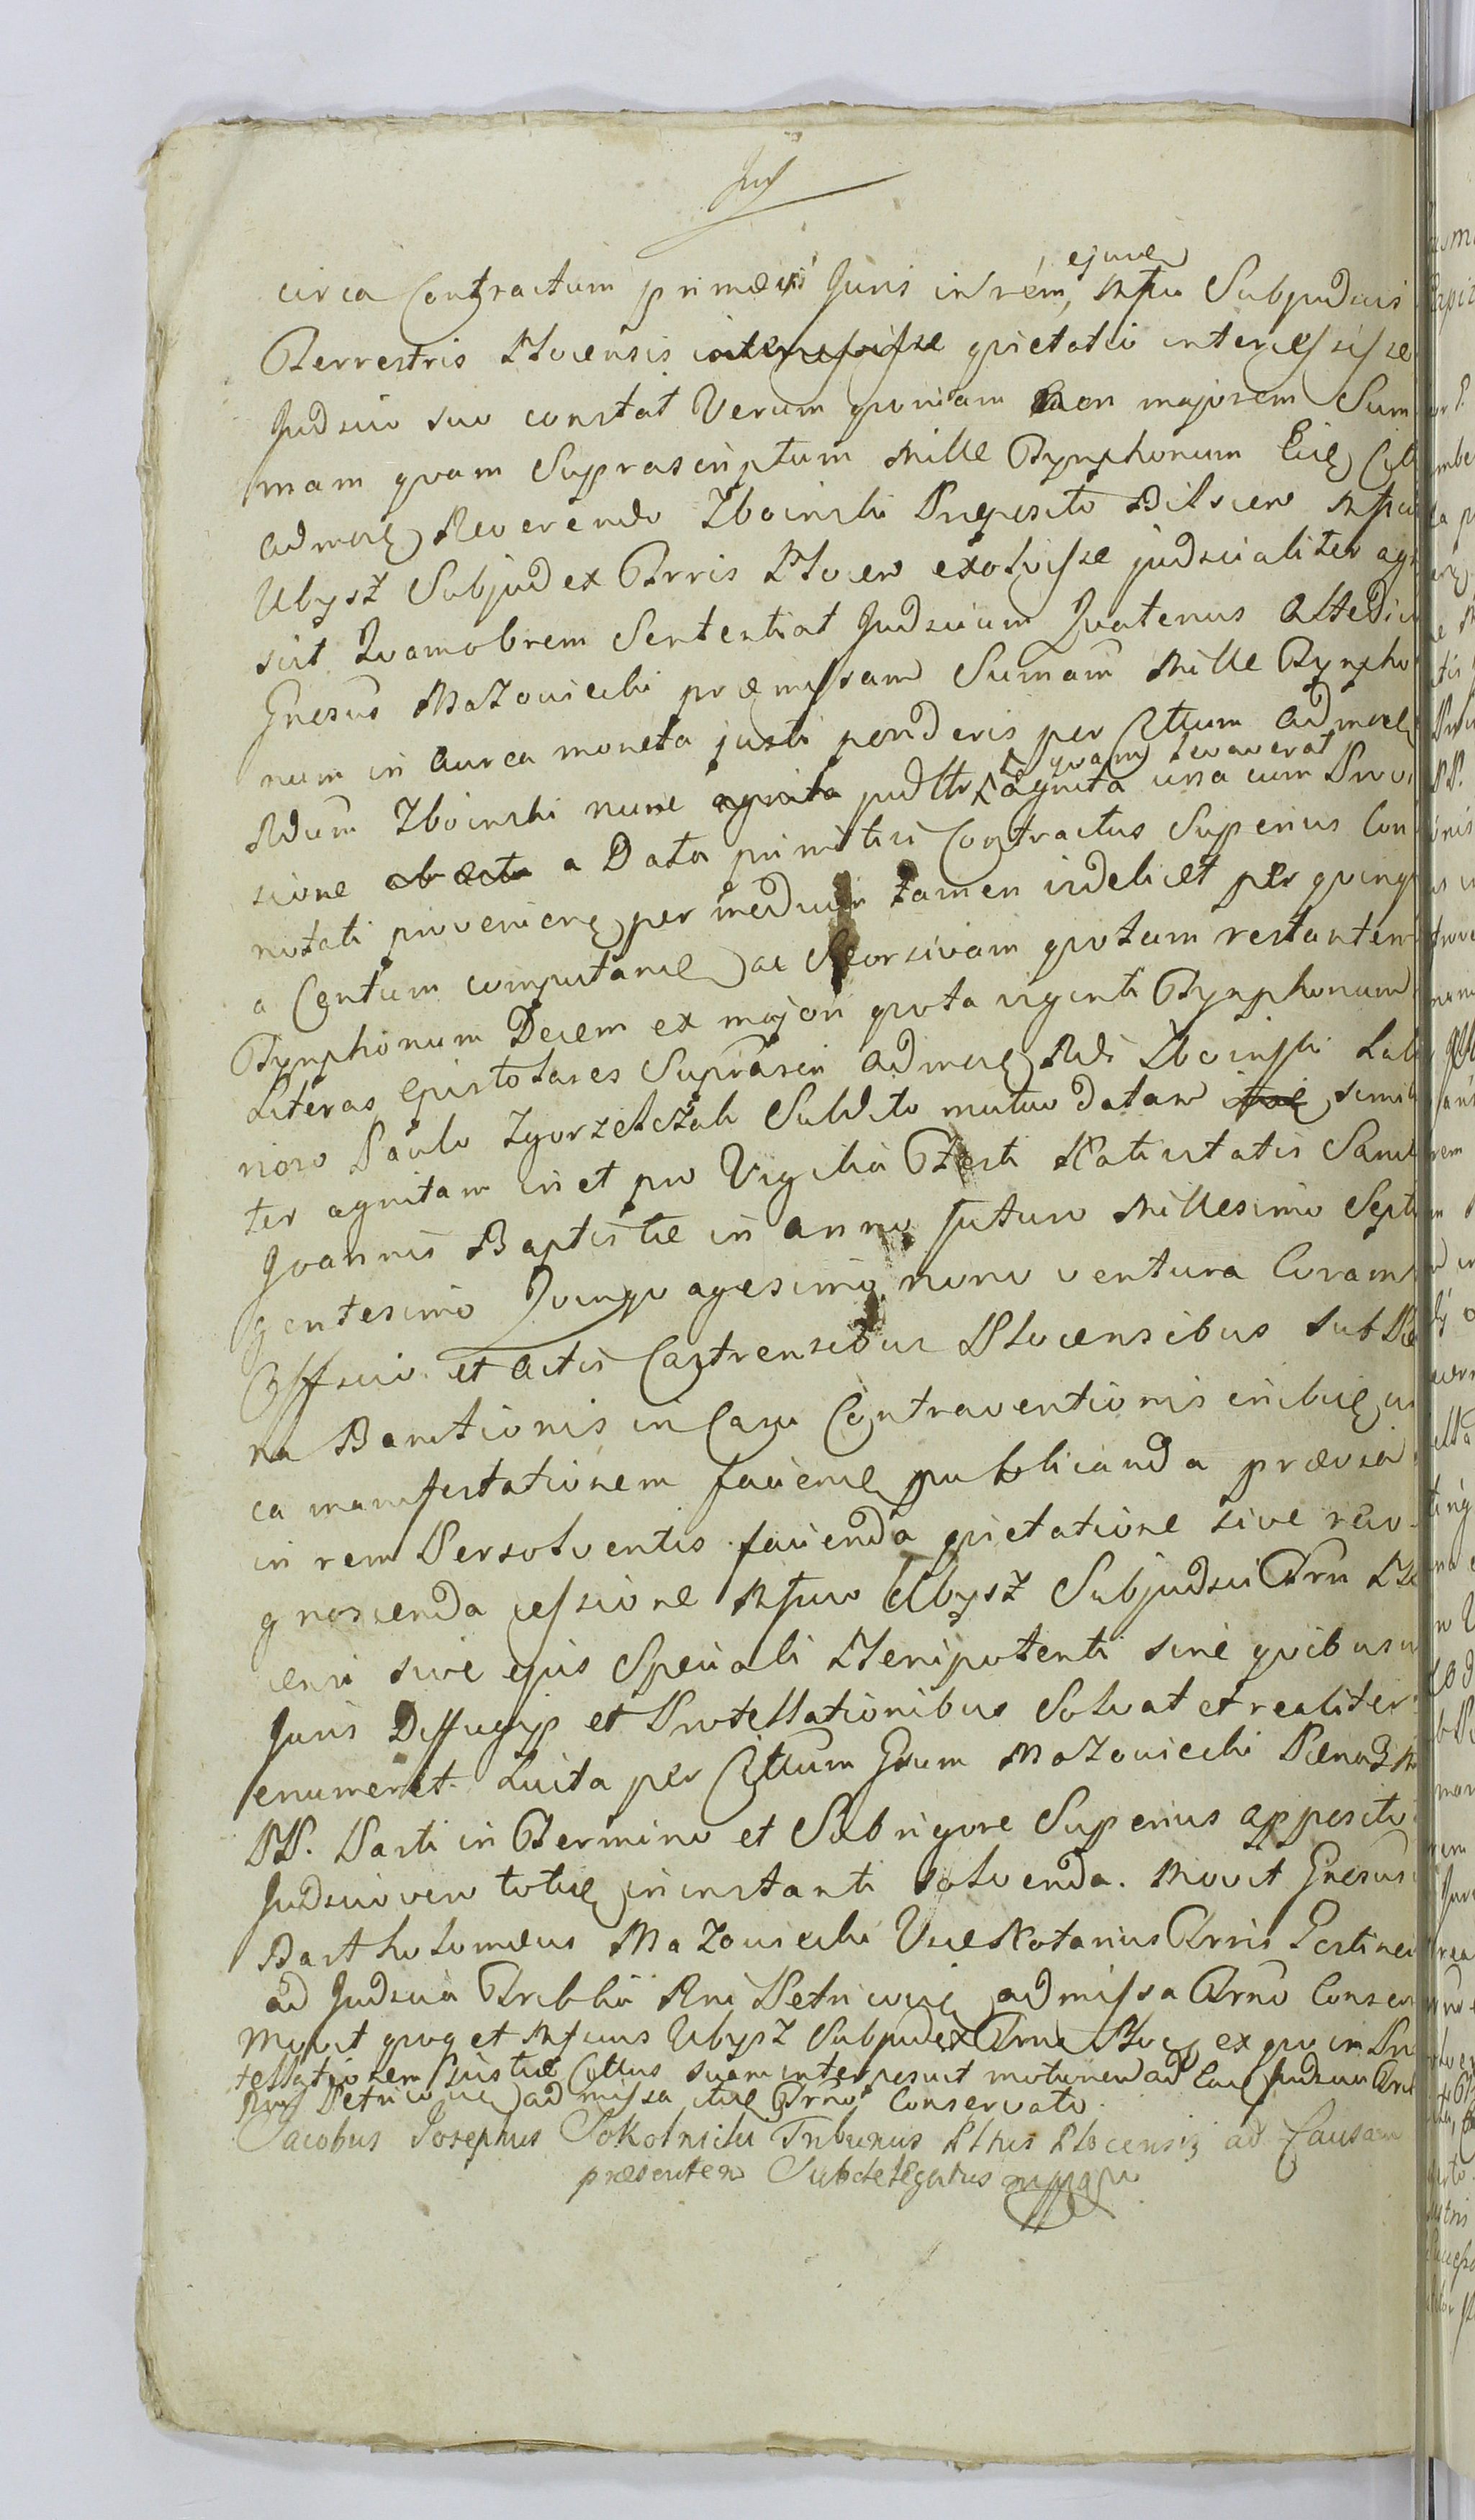 circa Contractum primævi Juris in rem, ejusdem Mfci Subjudicis
Terrestris Plocensis intercessisse qvietatio intercessisse
Judicio suo constat Verum qvoniam non majorem Sum
mam qvam Suprascriptum Mille Tynphonum Eidę Cltt
admodę Reverendo Zboinski Præposito Bilscen Mfcu
Ubysz Subjudex Trris Plocen exolvisse judicialiter agno
scit Qvamobrem Sententiat Judicium Qvatenus Altedict
Gnesus Mazowiecki præmissam Sumam Mille Tynpho
num in aurea moneta justi ponderis per Clttum admodę
Rdum Zboinski nunc agnita judltr qvam levaverat agnita una cum Provi
sione ab acta a Data primitivi Contractus Superius Con
notati provenienę per medium tamen videlicet per qvinqv
a Centum computandę ac Seorsivam qvotam restantem
Tynphonum Decem ex majori qvota viginti Tynphonum
Literas Epistolares Suprascri admodę Rdi Zboinski Lab
rioso Paulo Zgorzelczak Subdito mutuo datam itidę simili
ter agnitam in et pro Vigilia Festi Nativitatis Sancti
Joannis Baptistæ in anno futuro Millesimo Septi
gentesimo Qvinqvagesimo nono ventura Coram
Officio et Actis Castrensibus Plocensibus Sub Pæ
na Banitionis in Casu Contraventionis
ca manifestationem faciendę publicanda prævia
in rem Persolventis facienda qvietatione sive reco
gnoscenda cessione Mfco Ubysz Subjudici Trri Plo
censi sive ejus Speciali Plenipotenti sine qvibusvis
Juris Diffugijs et Protellationibus Solvat et realiter
enumeret. Luita per Clttum Gsum Mazowiecki Pæna
PP. Parti in Termino et Sub rigore Superius apposito
Judicio vero totidę in instanti solvenda. Movit Gnesus
Bartholomæus Mazowiecki ViceNotarius Trris Gostinen
ad Judicia Triblia Rni Petricovię admissa Trno Conserv
Movit qvoq et Mfcus Ubysz Subjudex Trris Ploc, ex qvo in Pro
tellationem Justitiæ Clttus suam interposuit motionem ad Eadę Judicia Trib
Rni Petricovię admissa itidę Trno Conservato.
Jacobus Josephus Sokolnicki Tribunus Plttus Plocensis ad Causam
præsentem Subdelegatus mppa